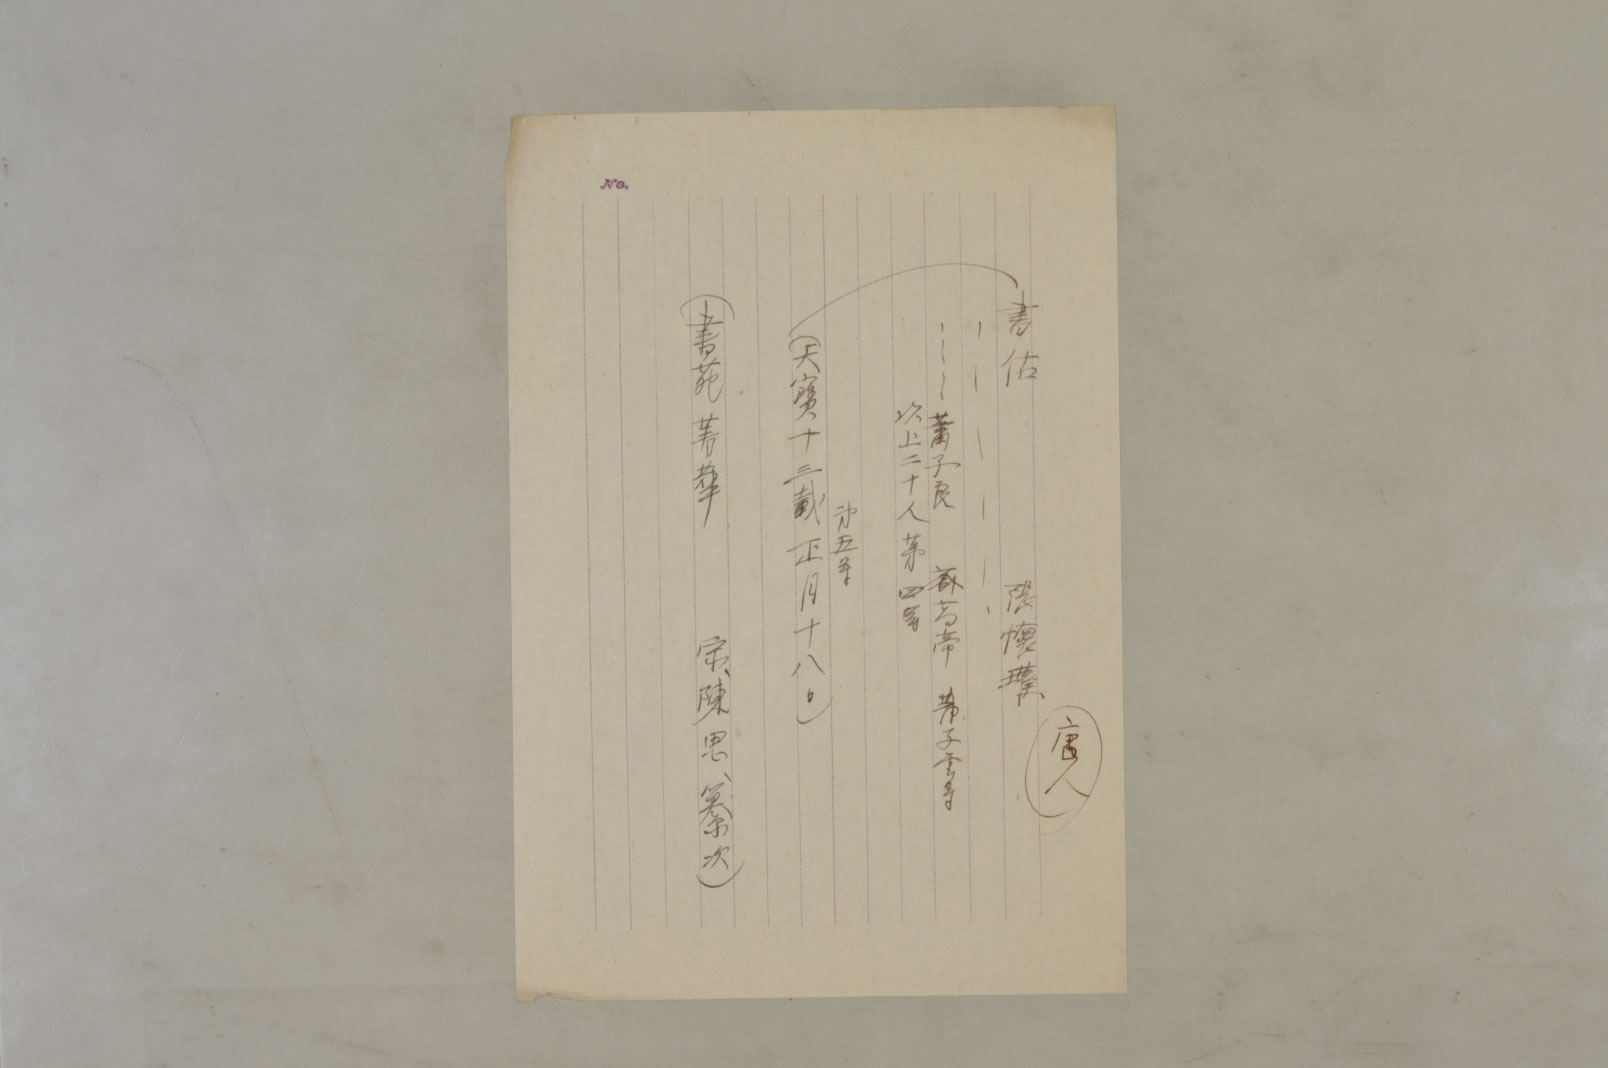 No.
書估 張懷瓘
唐人
蕭子良 齊高帝 蕭子雲等
以上二十人第四等
第五等
(天寶十三載正月十八日)
(書苑菁華 宋、陳思、纂次)